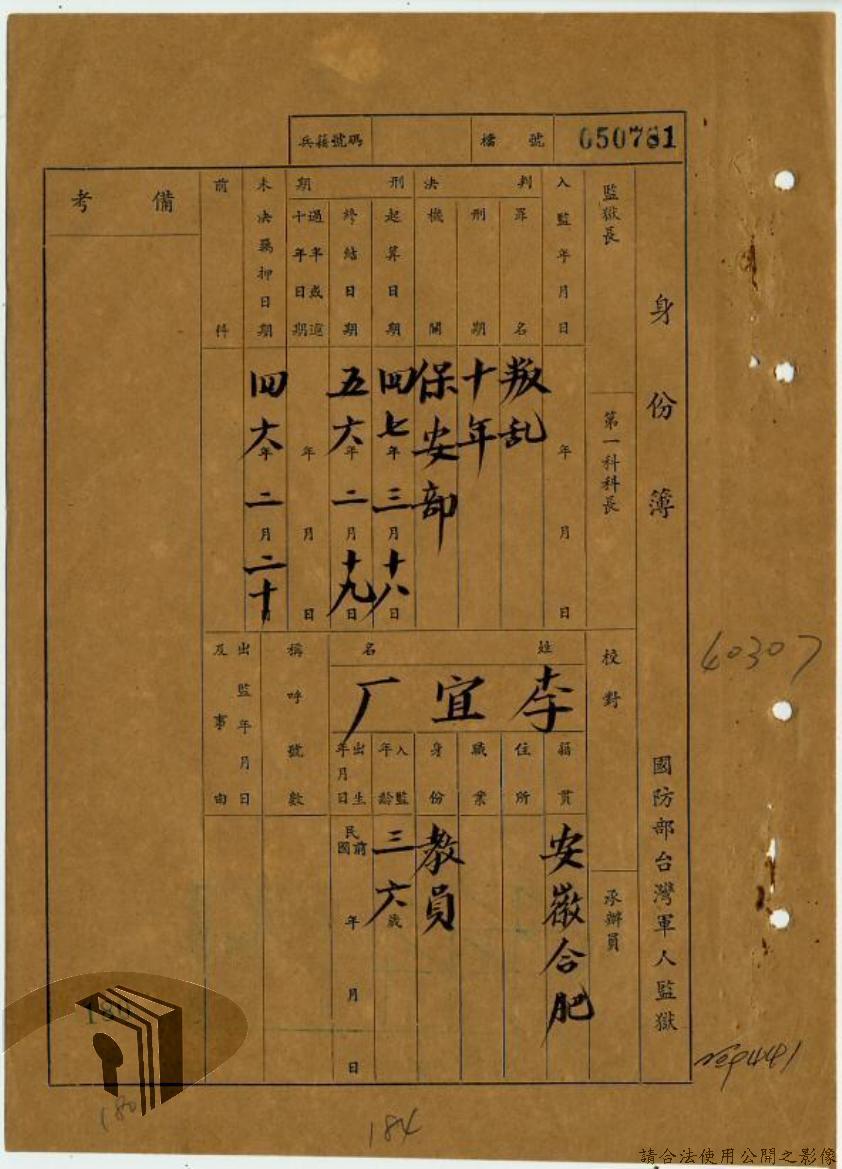 兵籍號碼
檔號 050781
身份簿
國防部台灣軍人監獄
監獄長
第一科科長
校對
承辦員
入監年月日
年 月 日
判決
罪名
叛乱
刑期
十年
機關
保安部
刑期
起算日期
四七年三月十八日
終結日期
五六年二月十九日
過年或逾十年日期
年 月 日
未決羈押日期
四六年二月二十
前科
備考
姓名
李宜厂
籍貫
安徽合肥
住所
職業
身份
教員
入監年齡
三六歲
出生年月日
民國前 年 月 日
稱呼號數
出監年月日及事由
60307
180
180
184
請合法使用公開之影像